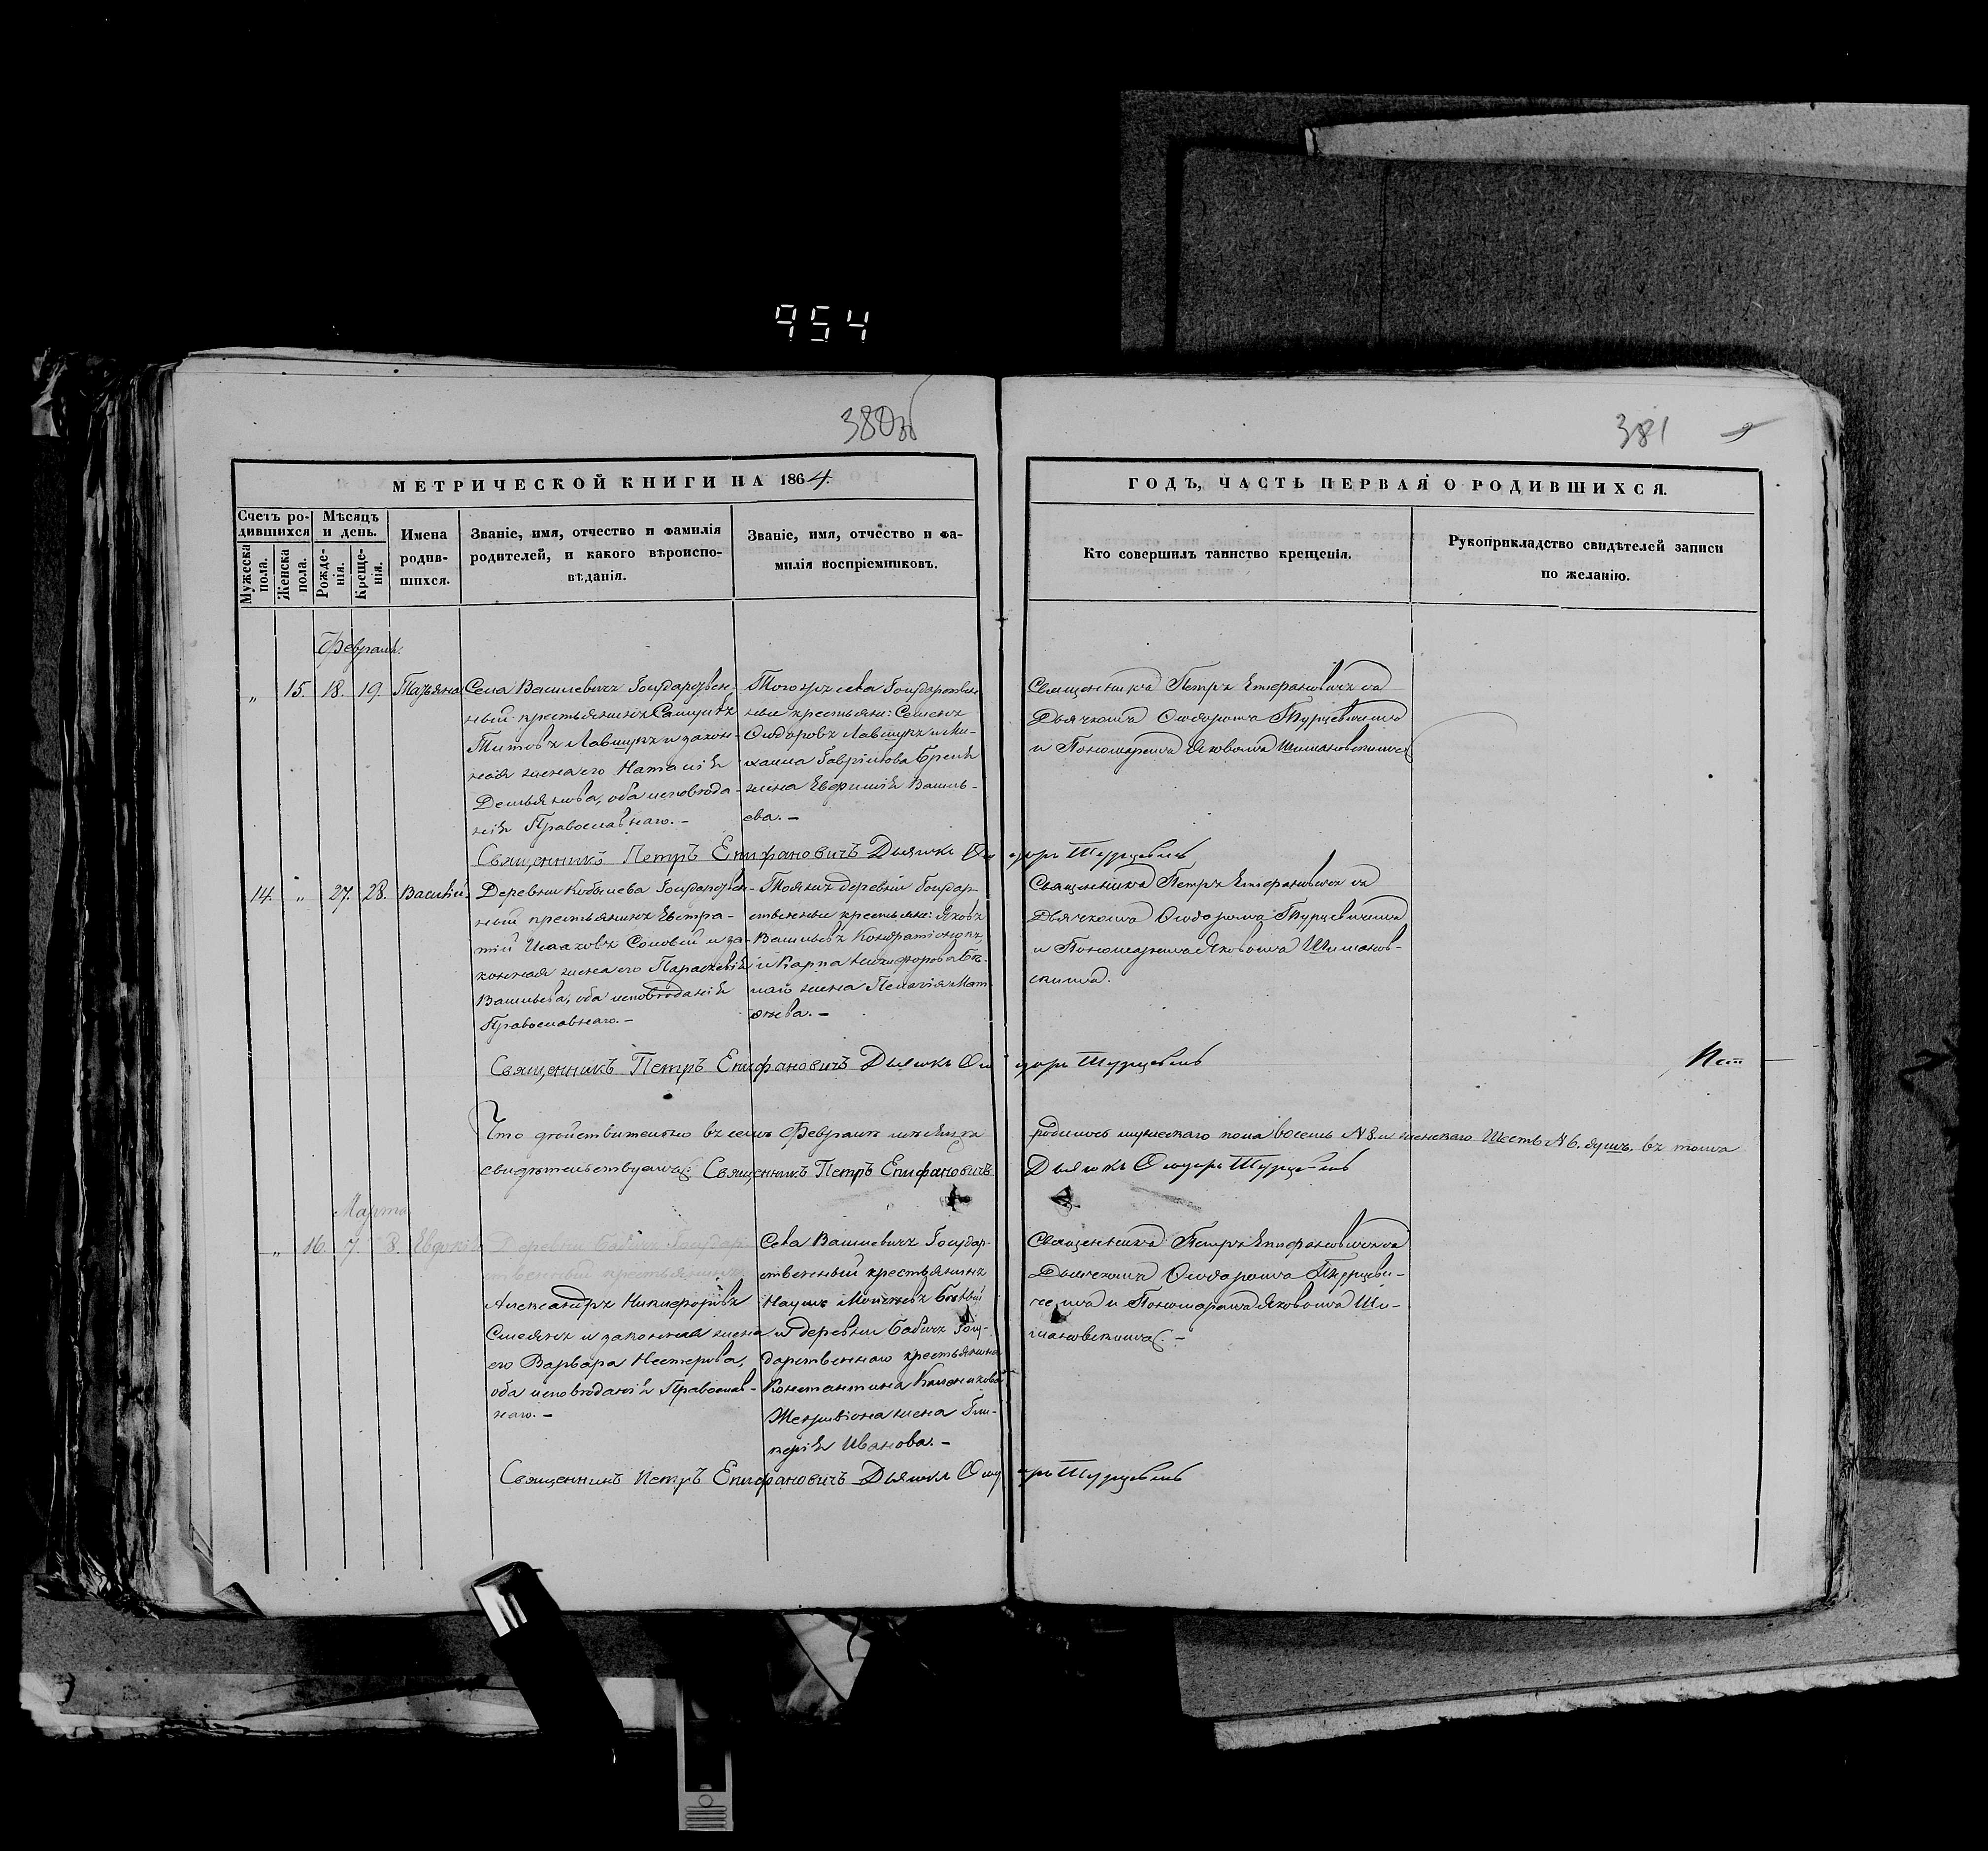 954
380об
381
9
МЕТРИЧЕСКОЙ КНИГИ НА 1864.
ГОДЪ, ЧАСТЬ ПЕРВАЯ О РОДИВШИХСЯ.
Счетъ родившихся
Мѣсяцъ и день.
Мужеска пола.
Женска пола.
Рожденія.
Крещенія.
Имена
родив-
шихся.
Званіе, имя, отчество и фамилія
родителей, и какого вѣроиспо-
вѣданія.
Званіе, имя, отчество и фа-
милія воспріемниковъ.
Кто совершилъ таинство крещенія.
Рукоприкладство свидѣтелей записи
по желанію.
Февраль.
„ 15. 18. 19. Татьяна
Села Василевичъ Государствен-
ный крестьянинъ
Титовъ Лавщукъ и закон-
ная жена его Наталія
Демьянова, оба исповѣда-
нія Православнаго. –
Тогожъ села Государствен
ные крестьяне: Семенъ
Ѳеодоровъ Лавщукъ и Ми-
хаила Гаврилова
жена Евфимія Василь-
ева. –
Священникъ Петръ Епифановичъ съ
Дьячкомъ Ѳеодоромъ Турцевичемъ
и Пономаремъ Яковомъ Шимановскимъ
Священникъ Петръ Епифановичъ Дьячокъ Ѳеодоръ Турцевичъ
14. „ 27. 28. Василій.
Деревни Кобылева Государствен-
ный крестьянинъ Евстра-
тій Исааковъ Соловей и за-
конная жена его Параскевія
Васильева, оба исповѣданія
Православнаго. –
Тояжъ деревни Государ-
ственные крестьяне: Яковъ
Васильевъ Кондратюкъ
и Карпа Никифорова
жена Пелагія Мат-
ѳѣева. –
Священникъ Петръ Епифановичъ съ
Дьячкомъ Ѳеодоромъ Турцевичемъ
и Пономаремъ Яковомъ Шиманов-
скимъ.
Священникъ Петръ Епифановичъ Дьячокъ Ѳеодоръ Турцевичъ
Что дѣйствительно въ семъ Февралѣ мѣсяцѣ родилось мужескаго пола восемь №8. и женскаго шесть №6. душъ, въ томъ
свидѣтельствуемъ: Священникъ Петръ Епифановичъ Дьячокъ Ѳеодоръ Турцевичъ
Мартъ
„ 16. 7. 8. Евдокія
Деревни Бабичъ Государ-
ственный крестьянинъ
Александръ Никифоровъ
Смеянъ и законная жена
его Варвара Нестерова,
оба исповѣданія Православ-
наго. –
Села Василевичъ Государ-
ственный крестьянинъ
Наумъ Моисеевъ
и деревни Бабичъ Госу-
дарственнаго крестьянина
Константина
жена Гли-
керія Иванова. –
Священникъ Петръ Епифановичъ съ
Дьячкомъ Ѳеодоромъ Турцеви-
чемъ и Пономаремъ Яковомъ Ши-
мановскимъ. –
Священникъ Петръ Епифановичъ Дьячокъ Ѳеодоръ Турцевичъ